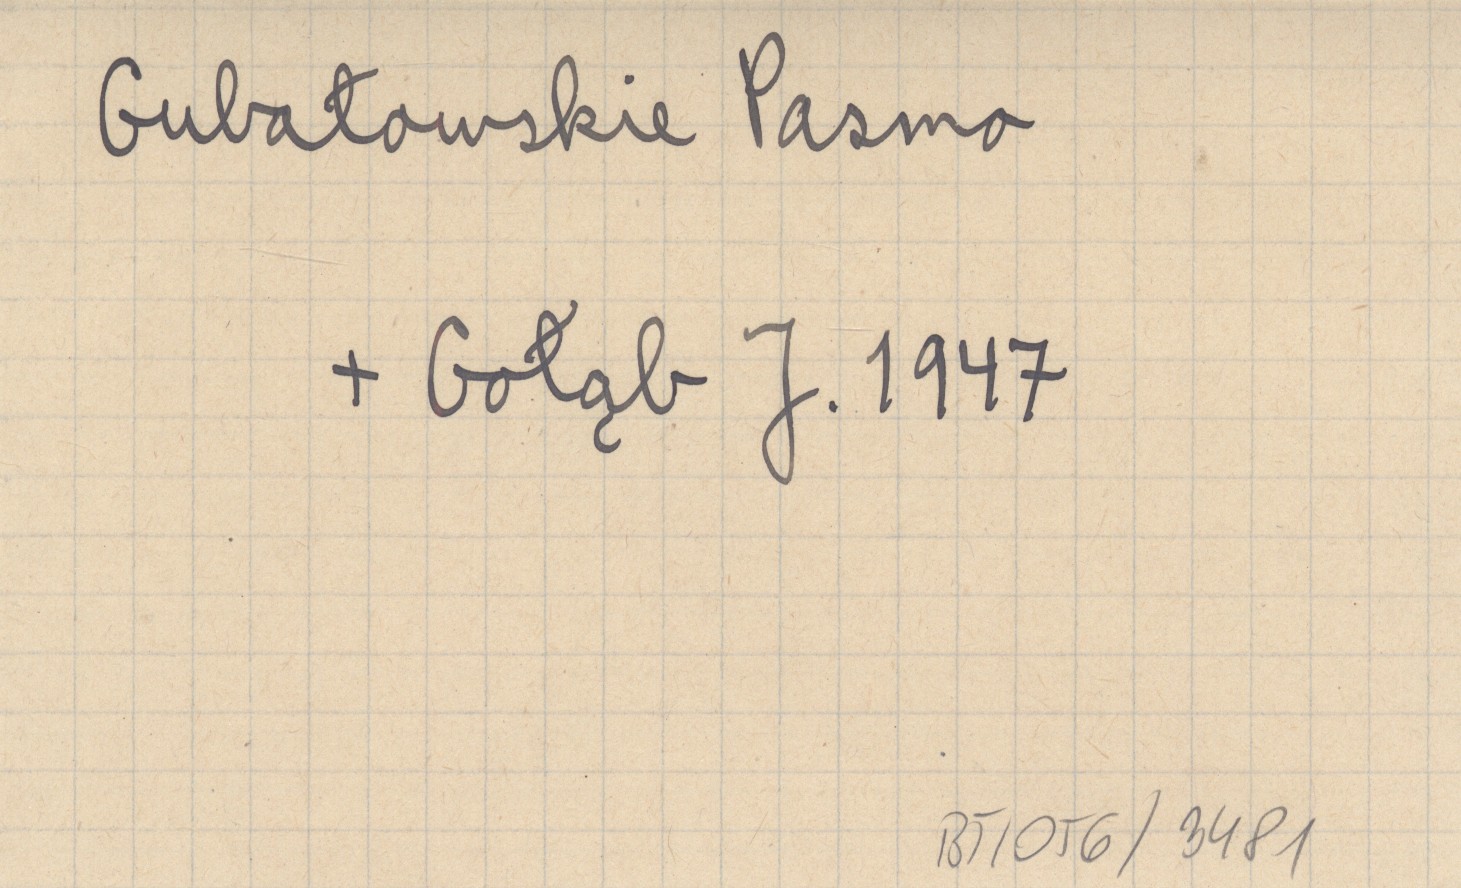 Gubałowskie Pasmo
+ Gołąb J. 1947
BT/056/3481